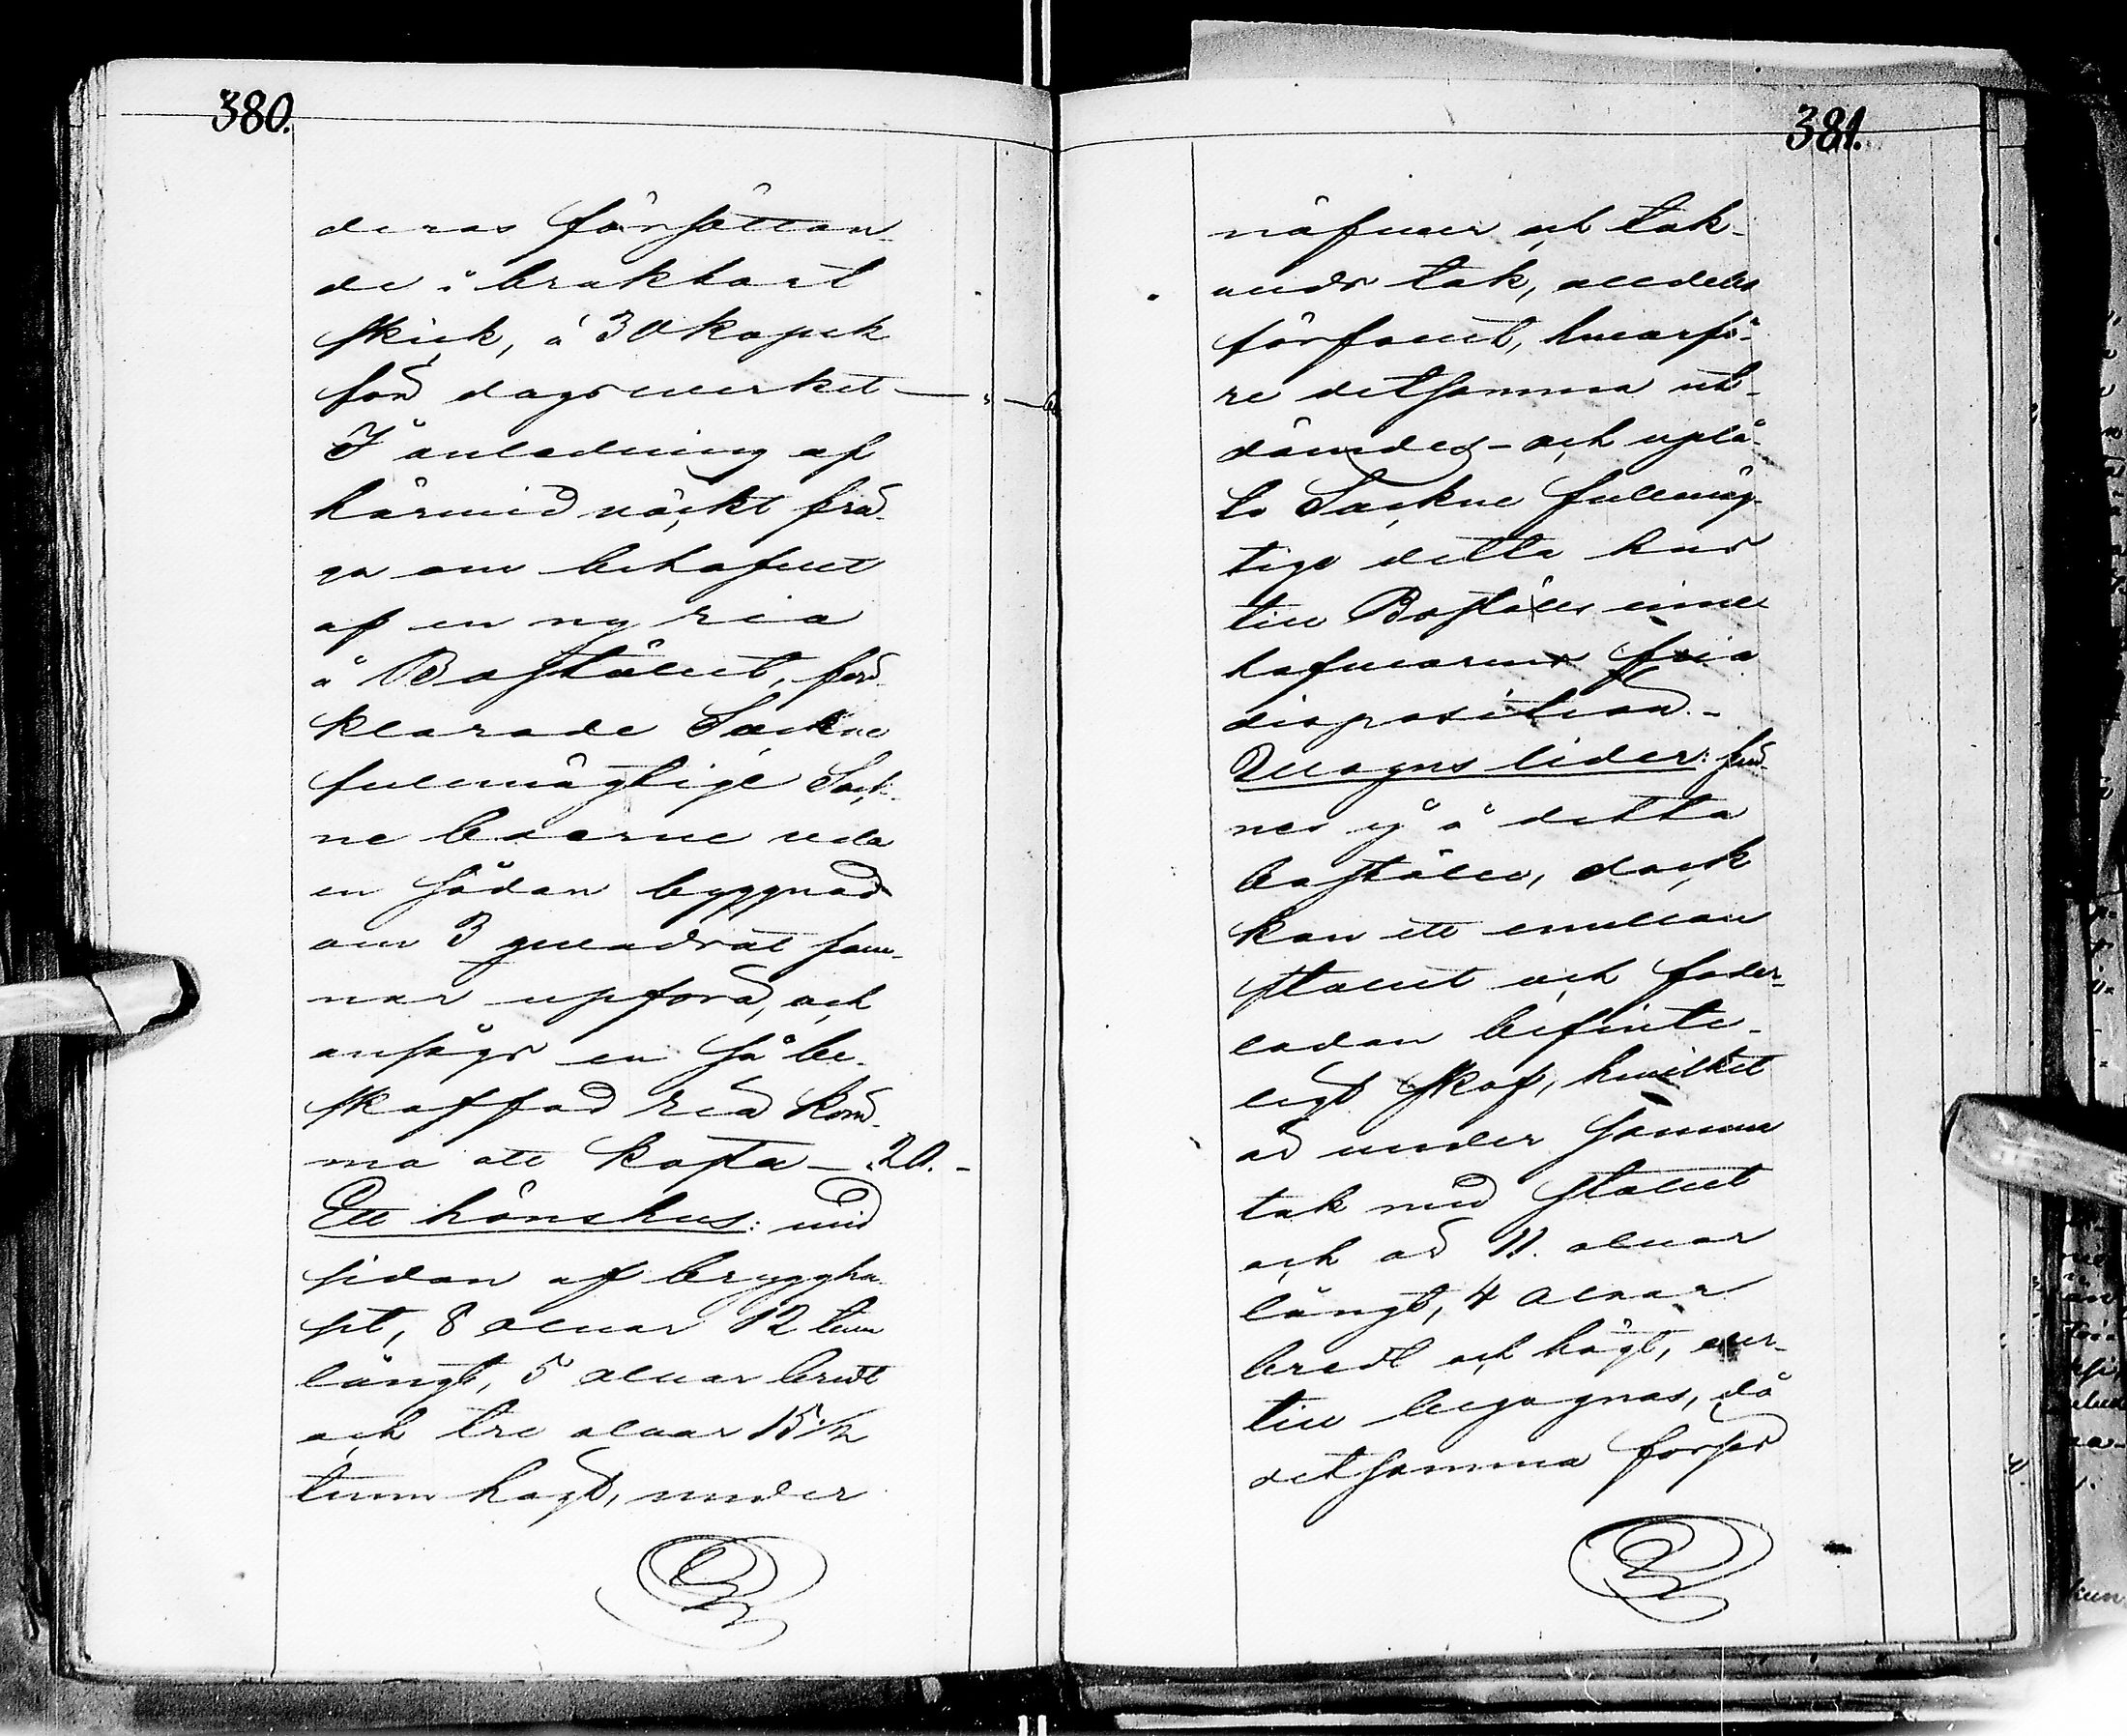 380.
deras försättan-
de i brukbart
skick, á 30 kopek
för dagsverket — „ — 60
I anledning af
härmid väckt frå-
ga om behofvet
af en ny ria
å Bostället, för-
klarade Sockne
fullmägtige Sock-
ne boerne vela
en sådan byggnad
om 3 quadrat fam-
nar uppföra, och
ansågs en så be-
skaffad ria kom-
ma att kosta — „20. -
Ett hönshus: vid
sidan af brygghu-
set, 8 alnar 12 tum
långt, 5 alnar bredt
och tre alnar 15 1/2
tum högt, under
381.
näfver och tak-
veds tak, alldeles
förfallit, hvarfö-
re detsamma ut-
dömdes - och uplä-
ts Sockne fullmäg-
tige detta hus
till Boställs inne
hafvarens fria
disposition. -
Vagns lider: fin-
nes ej å detta
boställe, dock
kan ett emellan
stallet och foder-
ladan befinte-
ligt skof, hvilket
är under samma
tak med stallet
och är 11. alnar
långt, 4 alnar
bredt och högt, der-
till begagnas, då
detsamma förses